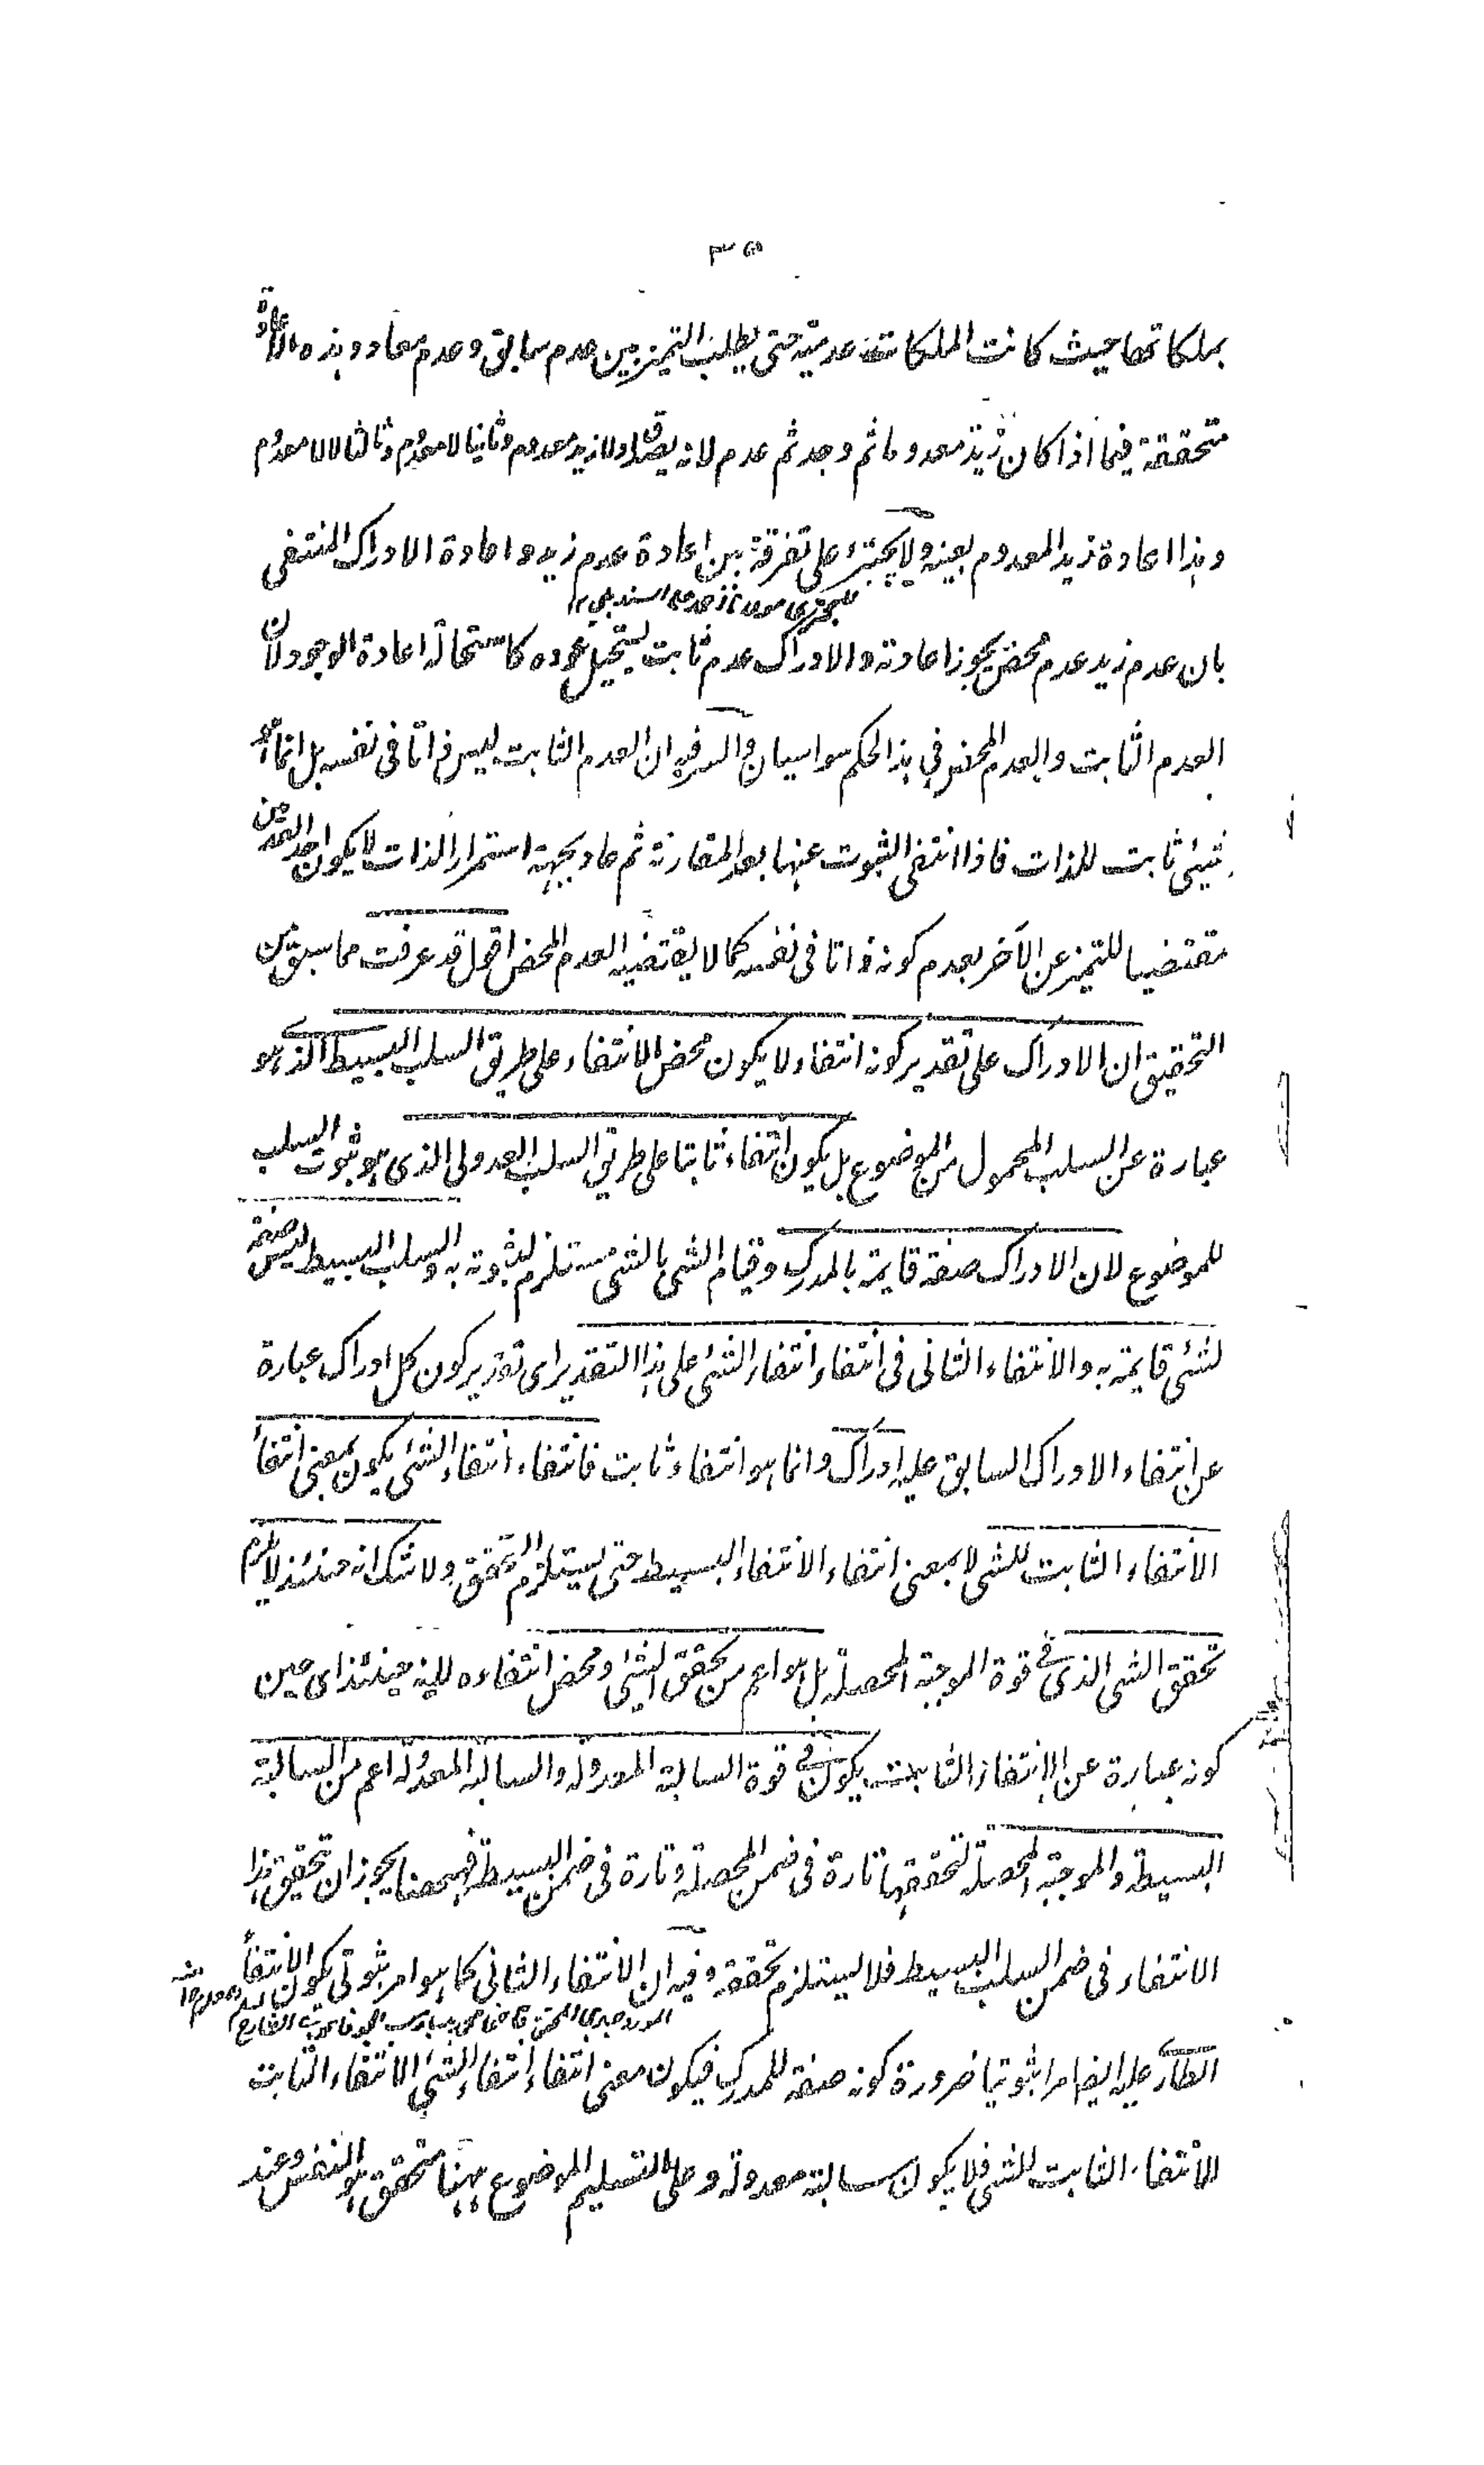 ٣٥
بملكاتها حيث كانت الملكات عدمية حتى يطلب التميز بين عدم سابق وعدم معاد وهذه الاعادة
متحققة فيما اذا كان زيد معدوما ثم وجد ثم عدم لانه يصدق اولا زيد معدوم وثانيا لا معدوم وثالثا لا لا معدوم
وهذا اعادة زيد المعدوم بعينه ولا يجترئ على تفرقة بين اعادة عدم زيد واعادة الادراك المنتفى
بان عدم زيد عدم محض يجوز اعادته والادراك عدم ثابت يستحيل عوده كاستحالة اعادة الوجود لان
العدم الثابت والعدم المحض فى هذا الحكم سواسيان والسر فيه ان العدم الثابت ليس ذاتا فى نفسه بل انما هو
شيئ ثابت للذات فاذا انتفى الثبوت عنها بعد المقارنة ثم عاد بجهة استمرار الذات لا يكون احد العدمين
مقتضيا للتميز عن الآخر بعدم كونه ذاتا فى نفسه كما لا يقتضيه العدم المحض اقول قد عرفت مما سبق من
التحقيق ان الادراك على تقدير كونه انتفاء لا يكون محض الانتفاء على طريق السلب البسيط الذى هو
عبارة عن السلب المحمول من الموضوع بل يكون انتفاء ثابتا على طريق السلب العدولى الذى هو ثبوت السلب
للموضوع لان الادراك صفة قايمة بالمدرك وقيام الشى بالشئ مستلزم لثبوته به والسلب البسيط ليس صفة
لشئ قايمة به والانتفاء الثانى فى انتفاء انتفاء الشئ على هذا التقدير اى تقدير كون كل ادراك عبارة
عن انتفاء الادراك السابق عليه ادراك وانما هو انتفاء ثابت فانتفاء انتفاء الشئ يكون بمعنى انتفاء
الانتفاء الثابت للشى لا بمعنى انتفاء الانتفاء البسيط حتى يستلزم التحقق ولا شك انه حينئذ لا يلزم
تحقق الشى الذى فى قوة الموجبة المحصلة بل هو اعم من تحقق الشئ ومحض انتفاءه لانه حينئذ اى حين
كونه عبارة عن الانتفاء الثابت يكون فى قوة السالبة المعدولة والسالبة المعدولة اعم من السالبة
البسيطة والموجبة المحصلة لتحققها تارة فى ضمن المحصلة وتارة فى ضمن البسيطة فههنا يجوز ان تحقيق هذا
الانتفاء فى ضمن السلب البسيط فلا يستلزم تحققه وفيه ان الانتفاء الثانى كما هو امر ثبوتى يكون الانتفاء
الطارى عليه ايضا امرا ثبوتيا ضرورة كونه صفة للمدرك فيكون معنى انتفاء انتفاء الشئ الانتفاء الثابت
لانتفاء الثابت للشى فلا يكون سالبة معدولة وعلى التسليم الموضوع ههنا متحقق هو النفس وعند